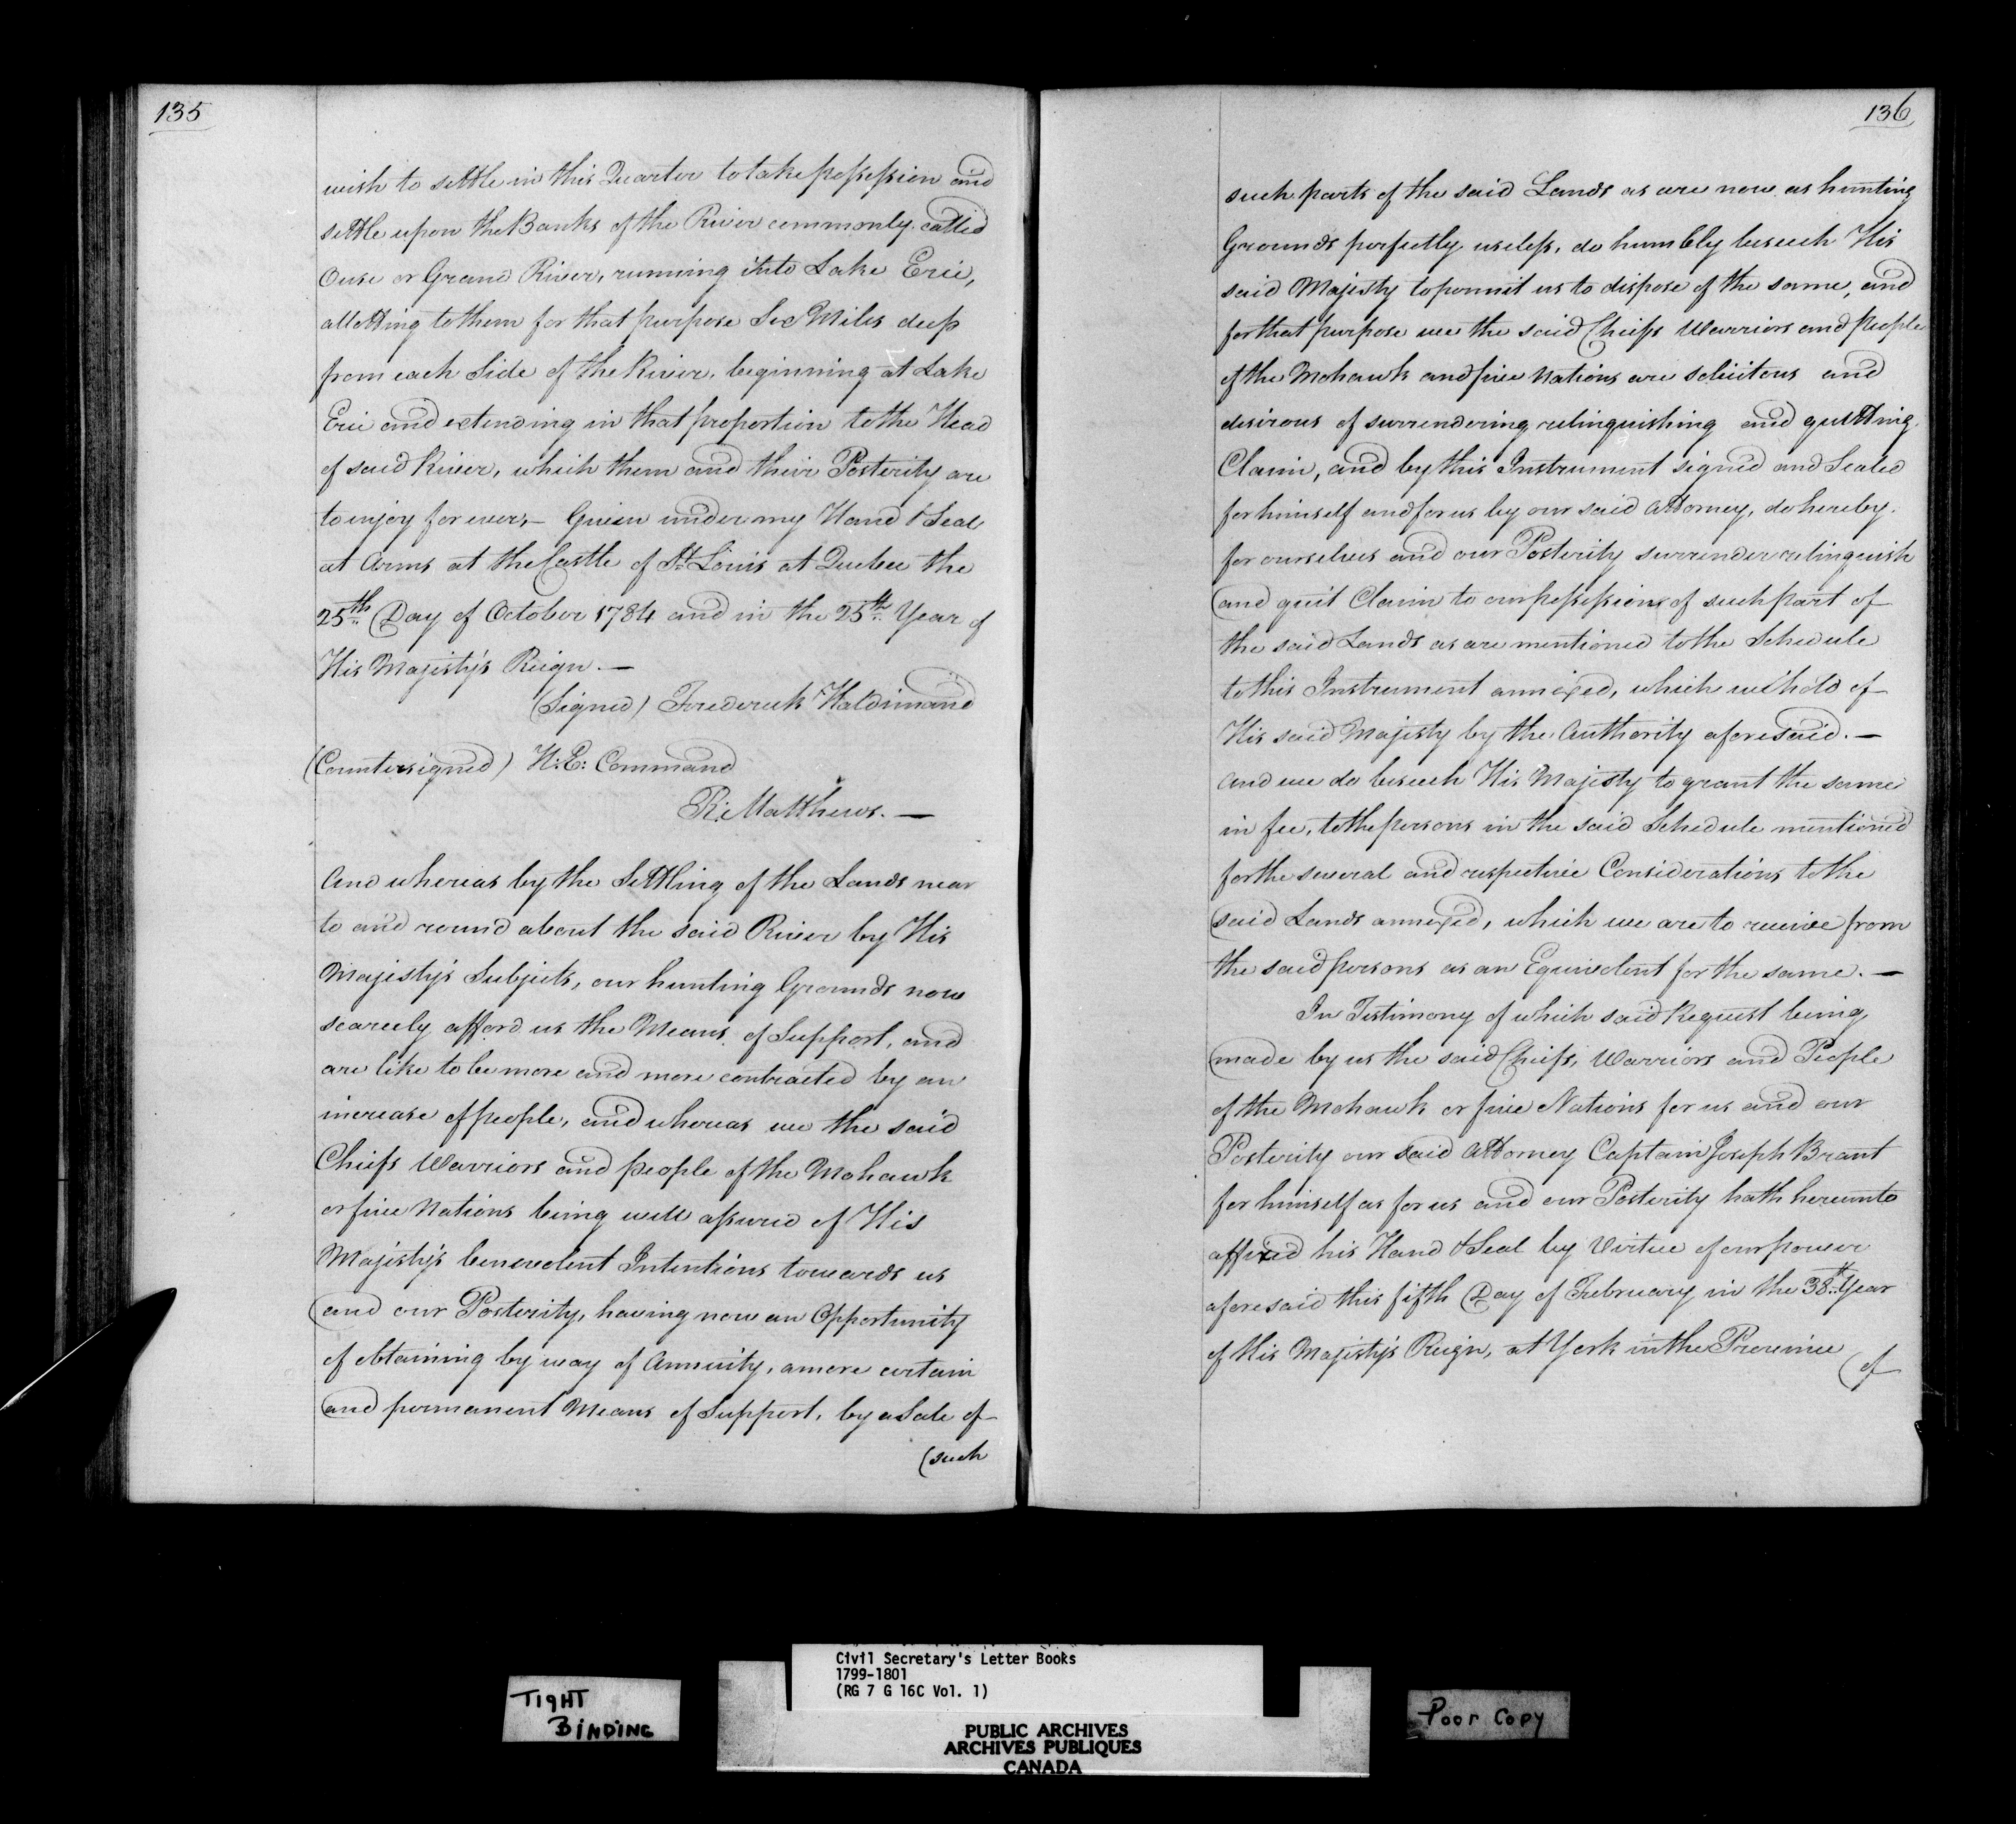 135
wish to settle in this Quarter to take possession and
settle upon the Banks of the River commonly called
Ouse or Grand River, running into Lake Erie,
allotting to them for that purpose Six Miles deep
from each Side of the River, beginning at Lake
Erie and extending in that proportion to the Head
of said River, which them and their Posterity are
to enjoy for ever,— Given under my Hand & Seal
at Arms at the Castle of St. Louis at Quebec the
25th. Day of October 1784 and in the 25th. Year of
His Majesty's Reign.—
(Signed) Frederick Haldimand
(Countersigned) H: E: Command
R: Matthews.—
And whereas by the Settling of the Lands near
to and round about the said River by His
Majesty's Subjects, our hunting Grounds now
scarcely afford us the Means of Support, and
are like to be more and more contracted by an
increase of people, and whereas we the said
Chiefs Warriors and people of the Mohawk
or five Nations being well assured of His
Majesty's benevolent Intentions towards us
and our Posterity, having now an Opportunity
of obtaining by way of Annuity, a more certain
and permanent Means of Support, by a Sale of
(such
136
such parts of the said Lands as are now as hunting
Grounds perfectly useless, do humbly beseech His
said Majesty to permit us to dispose of the same, and
for that purpose we the said Chiefs Warriors and people
of the Mohawk and five Nations are solicitous and
desirous of surrendering relinquishing and quitting
Claim, and by this Instrument signed and Sealed
for himself and for us by our said Attorney, do hereby
for ourselves and our Posterity surrender relinquish
and quit Claim to our possessions of such part of
the said Lands as are mentioned to the Schedule
to this Instrument annexed, which we hold of
His said Majesty by the Authority aforesaid.—
And we do beseech His Majesty to grant the same
in fee, to the persons in the said Schedule mentioned
for the several and respective Considerations to the
said Lands annexed, which we are to receive from
the said persons as an Equivalent for the same.—
In Testimony of which said Request being
made by us the said Chiefs, Warriors and People
of the Mohawk or five Nations for us and our
Posterity our said Attorney Captain Joseph Brant
for himself as for us and our Posterity hath hereunto
affixed his Hand & Seal by Virtue of our power
aforesaid this fifth Day of February in the 38th. Year
of His Majesty's Reign, at York in the Province
(of
TIGHT
BINDING
Civil Secretary's Letter Books
1799-1801
(RG 7 G 16C Vol. 1)
PUBLIC ARCHIVES
ARCHIVES PUBLIQUES
CANADA
Poor Copy